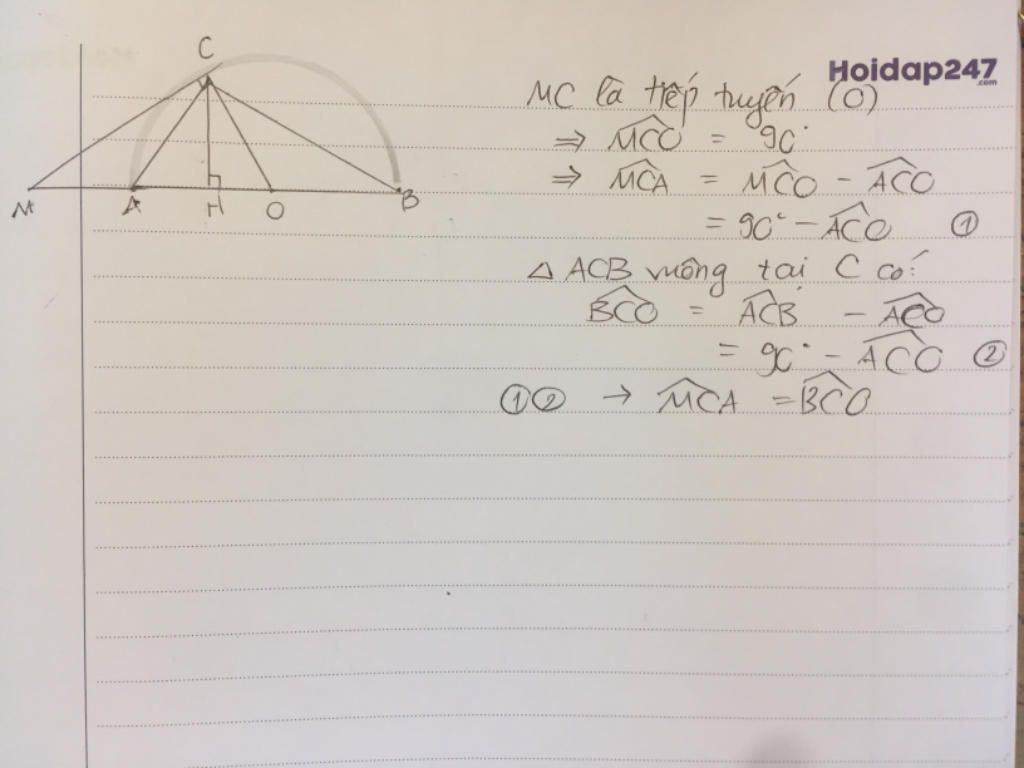 C
M A H O B
Hoidap247
.com
MC là tiếp tuyến (O)
⇒ \widehat{MCO} = 90°
⇒ \widehat{MCA} = \widehat{MCO} - \widehat{ACO}
= 90° - \widehat{ACO} ①
△ ACB vuông tại C có:
\widehat{BCO} = \widehat{ACB} - \widehat{ACO}
= 90° - \widehat{ACO} ②
①② → \widehat{MCA} = \widehat{BCO}